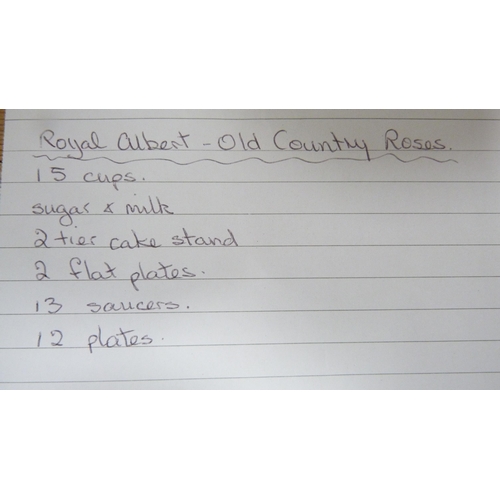 Royal Albert - Old Country Roses.
15 cups.
sugar & milk
2 tier cake stand
2 flat plates.
13 saucers.
12 plates.